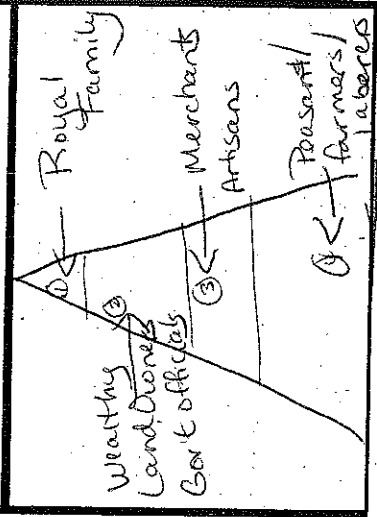 ① ← Royal
Family
②
Wealthy
Land Owners
Gov't officials
③ ← Merchants
Artisans
④ ← Peasant/
farmers/
laberers